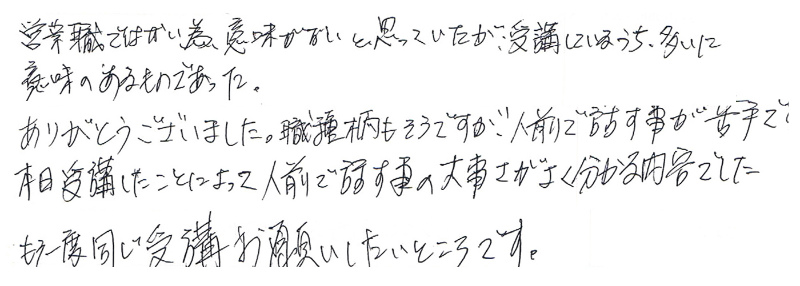 営業職ではない為、意味がないと思っていたが、受講しているうち、多いに
意味のあるものであった。
ありがとうございました。職種柄もそうですが、人前で話す事が苦手で
本日受講したことによって人前で話す事の大事さがよく分かる内容でした
もう一度同じ受講お願いしたいところです。